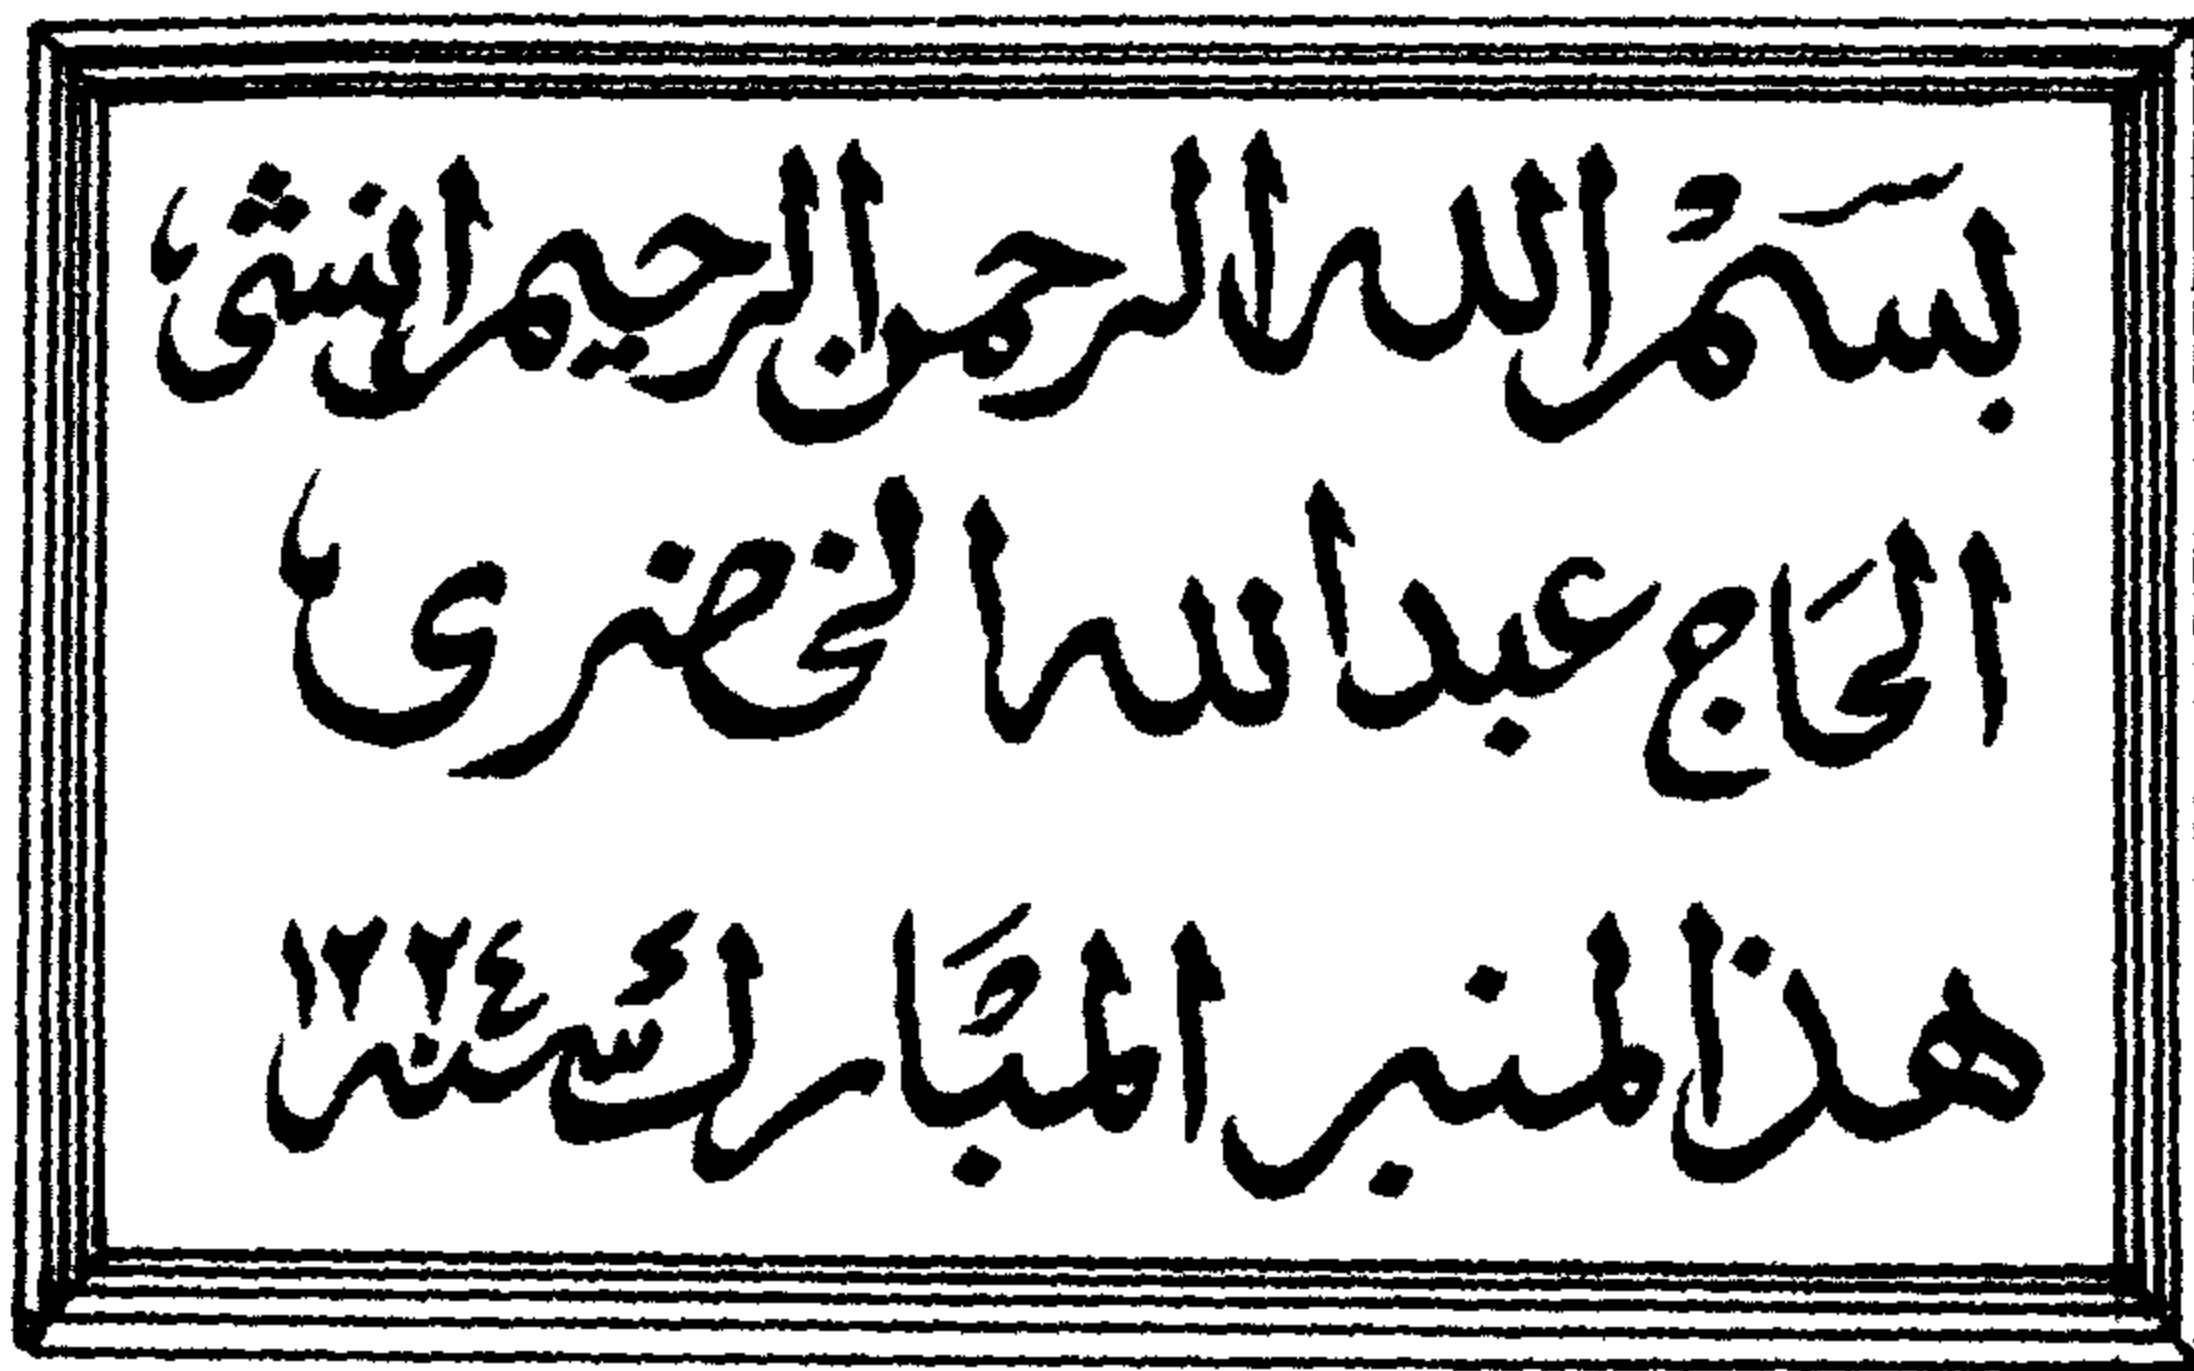 بسم الله الرحمن الرحيم انشى
الحاج عبد الله الخضرى
هذا المنبر المبارك سنه ١٢٢٤